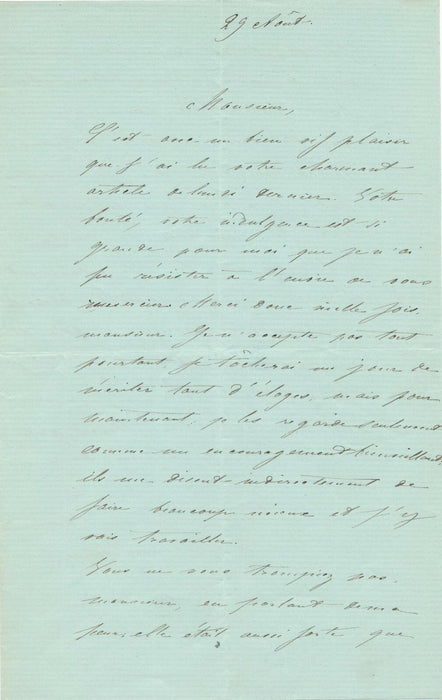 29 Août.
Monsieur,
C'est avec un bien vif plaisir
que j'ai lu votre charmant
article de lundi dernier. Votre
bonté, votre indulgence est si
grande pour moi que je n'ai
pu résister à l'envie de vous
remercier. Merci donc mille fois,
monsieur. Je n'accepte pas tout
pourtant, je tâcherai un jour de
mériter tant d'éloges, mais pour
maintenant, je les regarde seulement
comme un encouragement bienveillant,
ils me disent indirectement de
faire beaucoup mieux et j'y
vais travailler.
Vous ne vous trompiez pas,
monsieur, en parlant de ma
peur, elle était aussi forte que